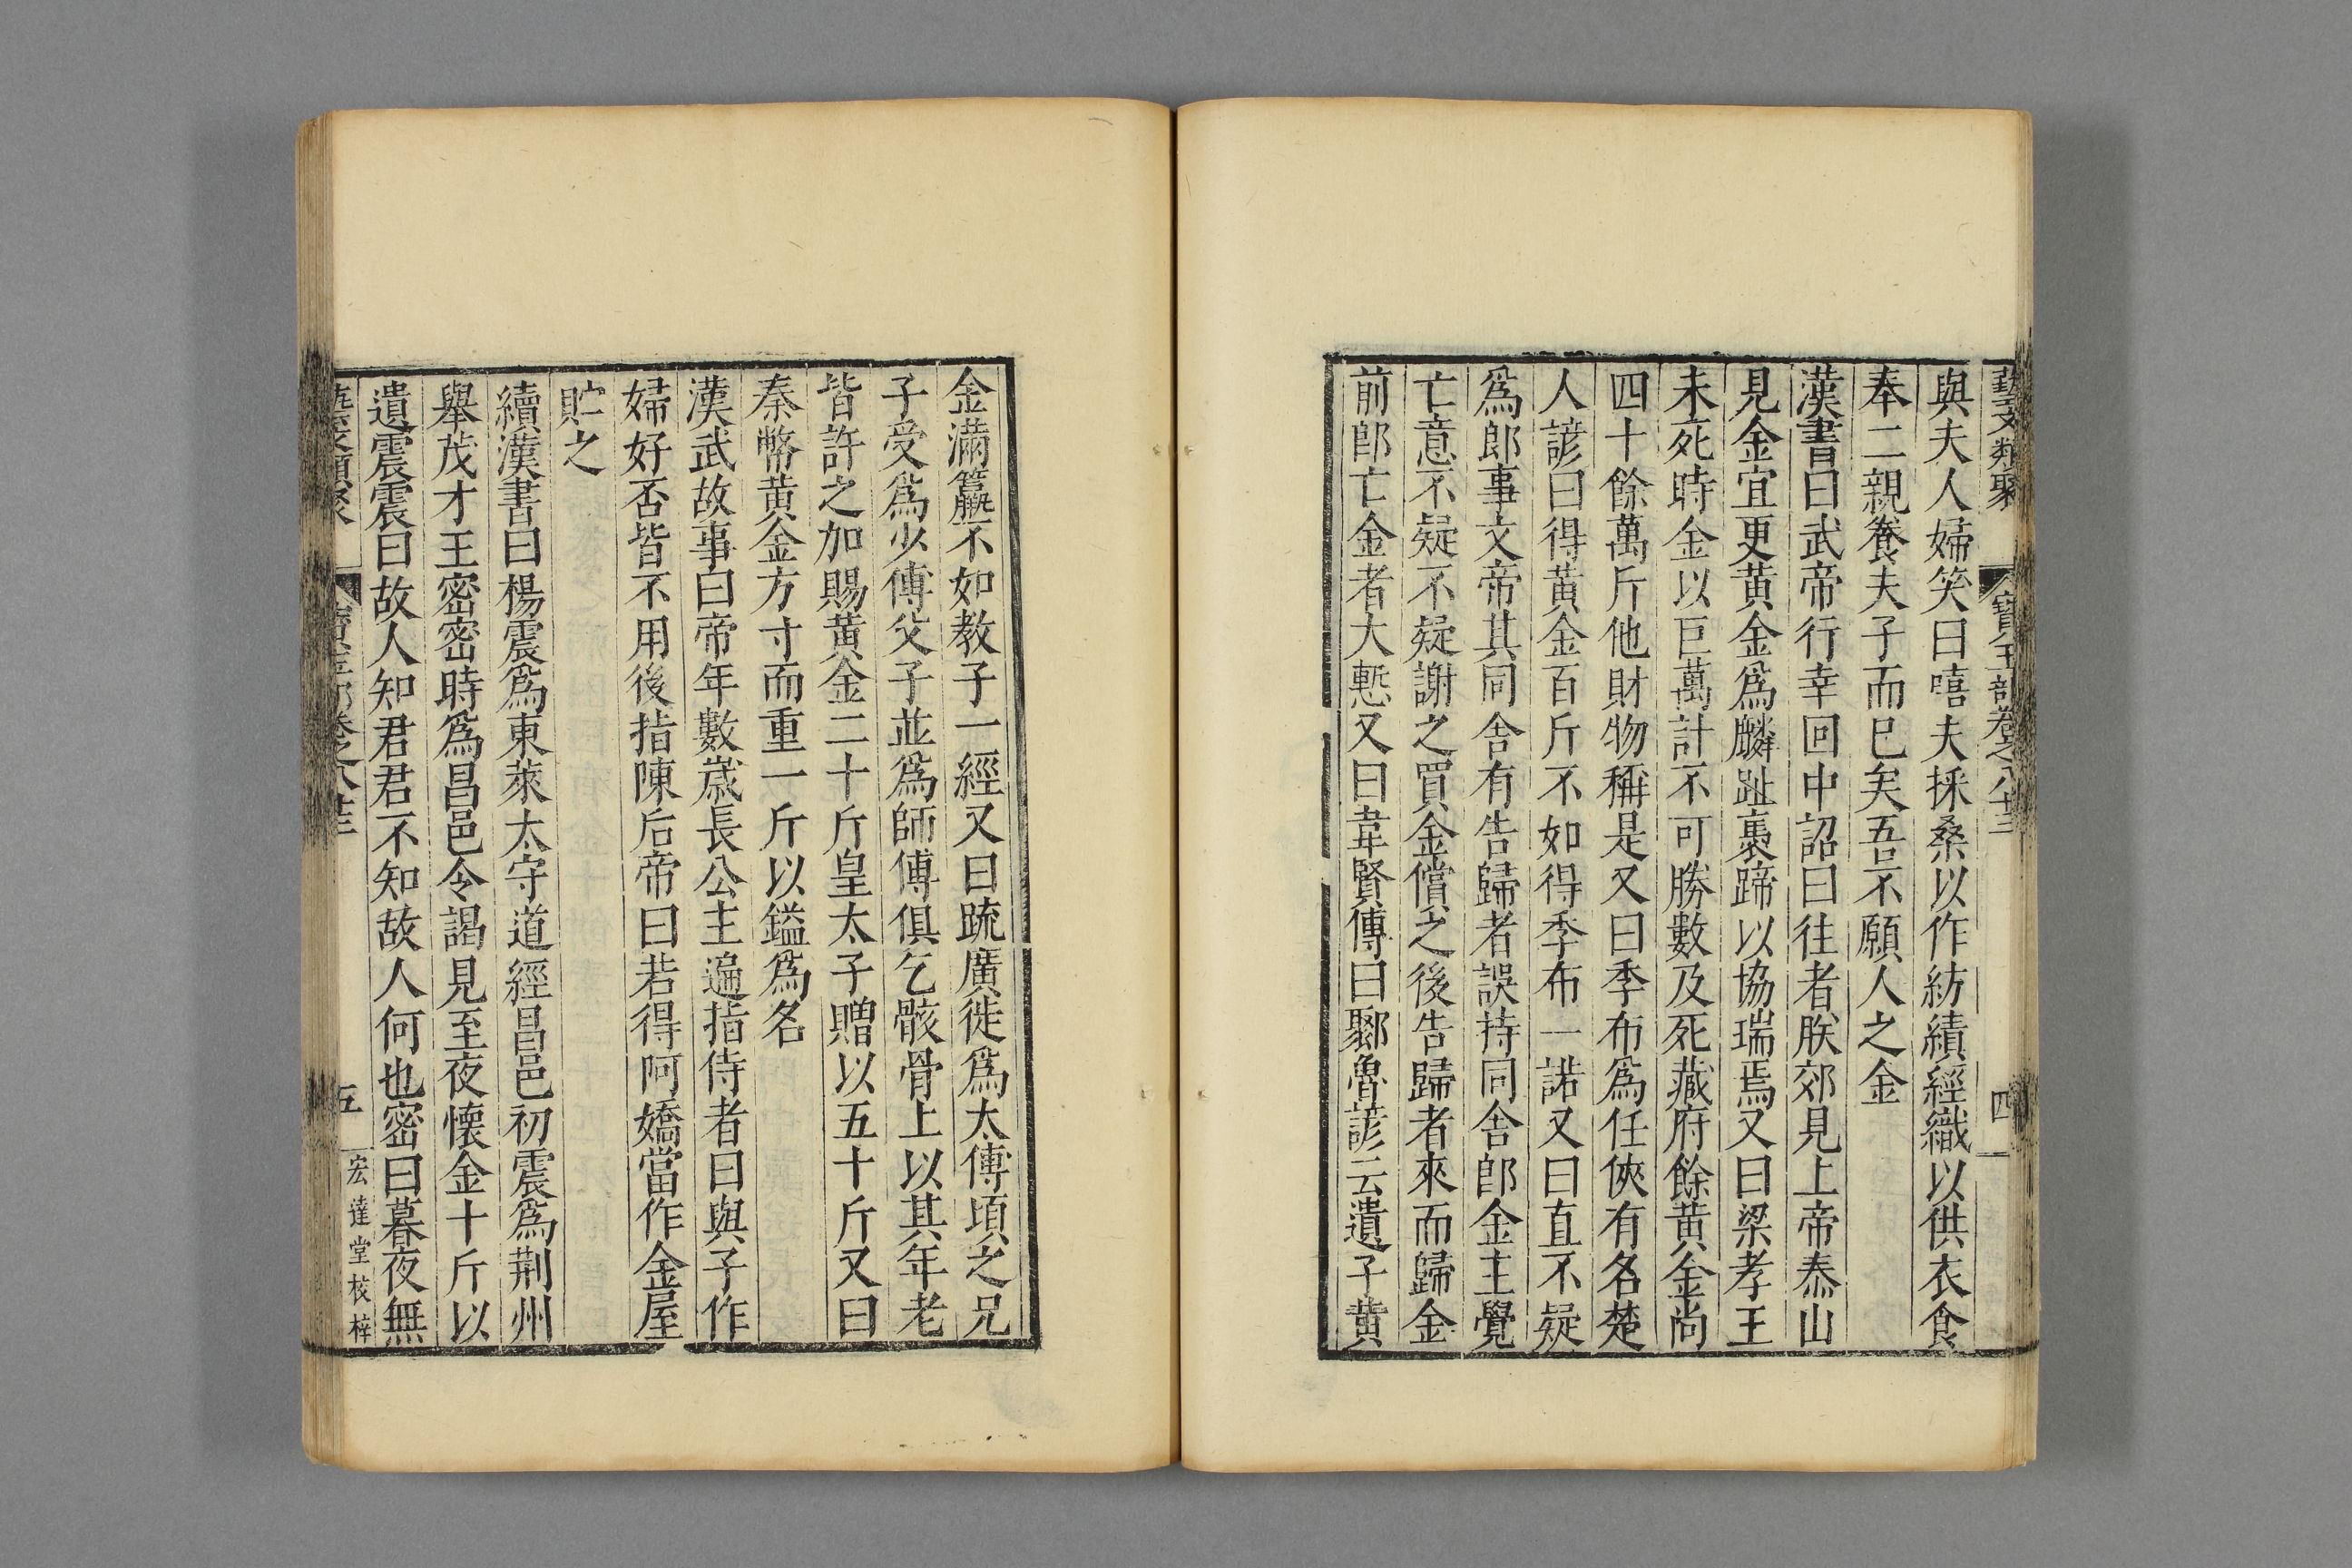 藝文類聚 寶玉部卷之八十三 四
與夫人婦笑曰嘻夫採桑以作紡績經織以供衣食
奉二親養夫子而已矣吾不願人之金
漢書曰武帝行幸回中詔曰往者朕郊見上帝泰山
見金宜更黄金爲麟趾裹蹄以協瑞焉又曰梁孝王
未死時金以巨萬計不可勝數及死藏府餘黄金尚
四十餘萬斤他財物稱是又曰季布爲任俠有名楚
人諺曰得黄金百斤不如得季布一諾又曰直不疑
爲郎事文帝其同舍有告歸者誤持同舍郎金主覺
亡意不疑不疑謝之買金償之後告歸者來而歸金
前郎亡金者大慙又曰韋賢傳曰鄒魯諺云遺子黄
金滿籯不如教子一經又曰疏廣徙爲太傅頃之兄
子受爲少傅父子並爲師傅俱乞骸骨上以其年老
皆許之加賜黄金二十斤皇太子贈以五十斤又曰
秦幣黄金方寸而重一斤以鎰爲名
漢武故事曰帝年數歲長公主遍指侍者曰與子作
婦好否皆不用後指陳后帝曰若得阿嬌當作金屋
貯之
續漢書曰楊震爲東萊太守道經昌邑初震爲荆州
舉茂才王密密時爲昌邑令謁見至夜懷金十斤以
遺震震曰故人知君君不知故人何也密曰暮夜無
藝文類聚 寶玉部卷之八十三 五 宏達堂校梓